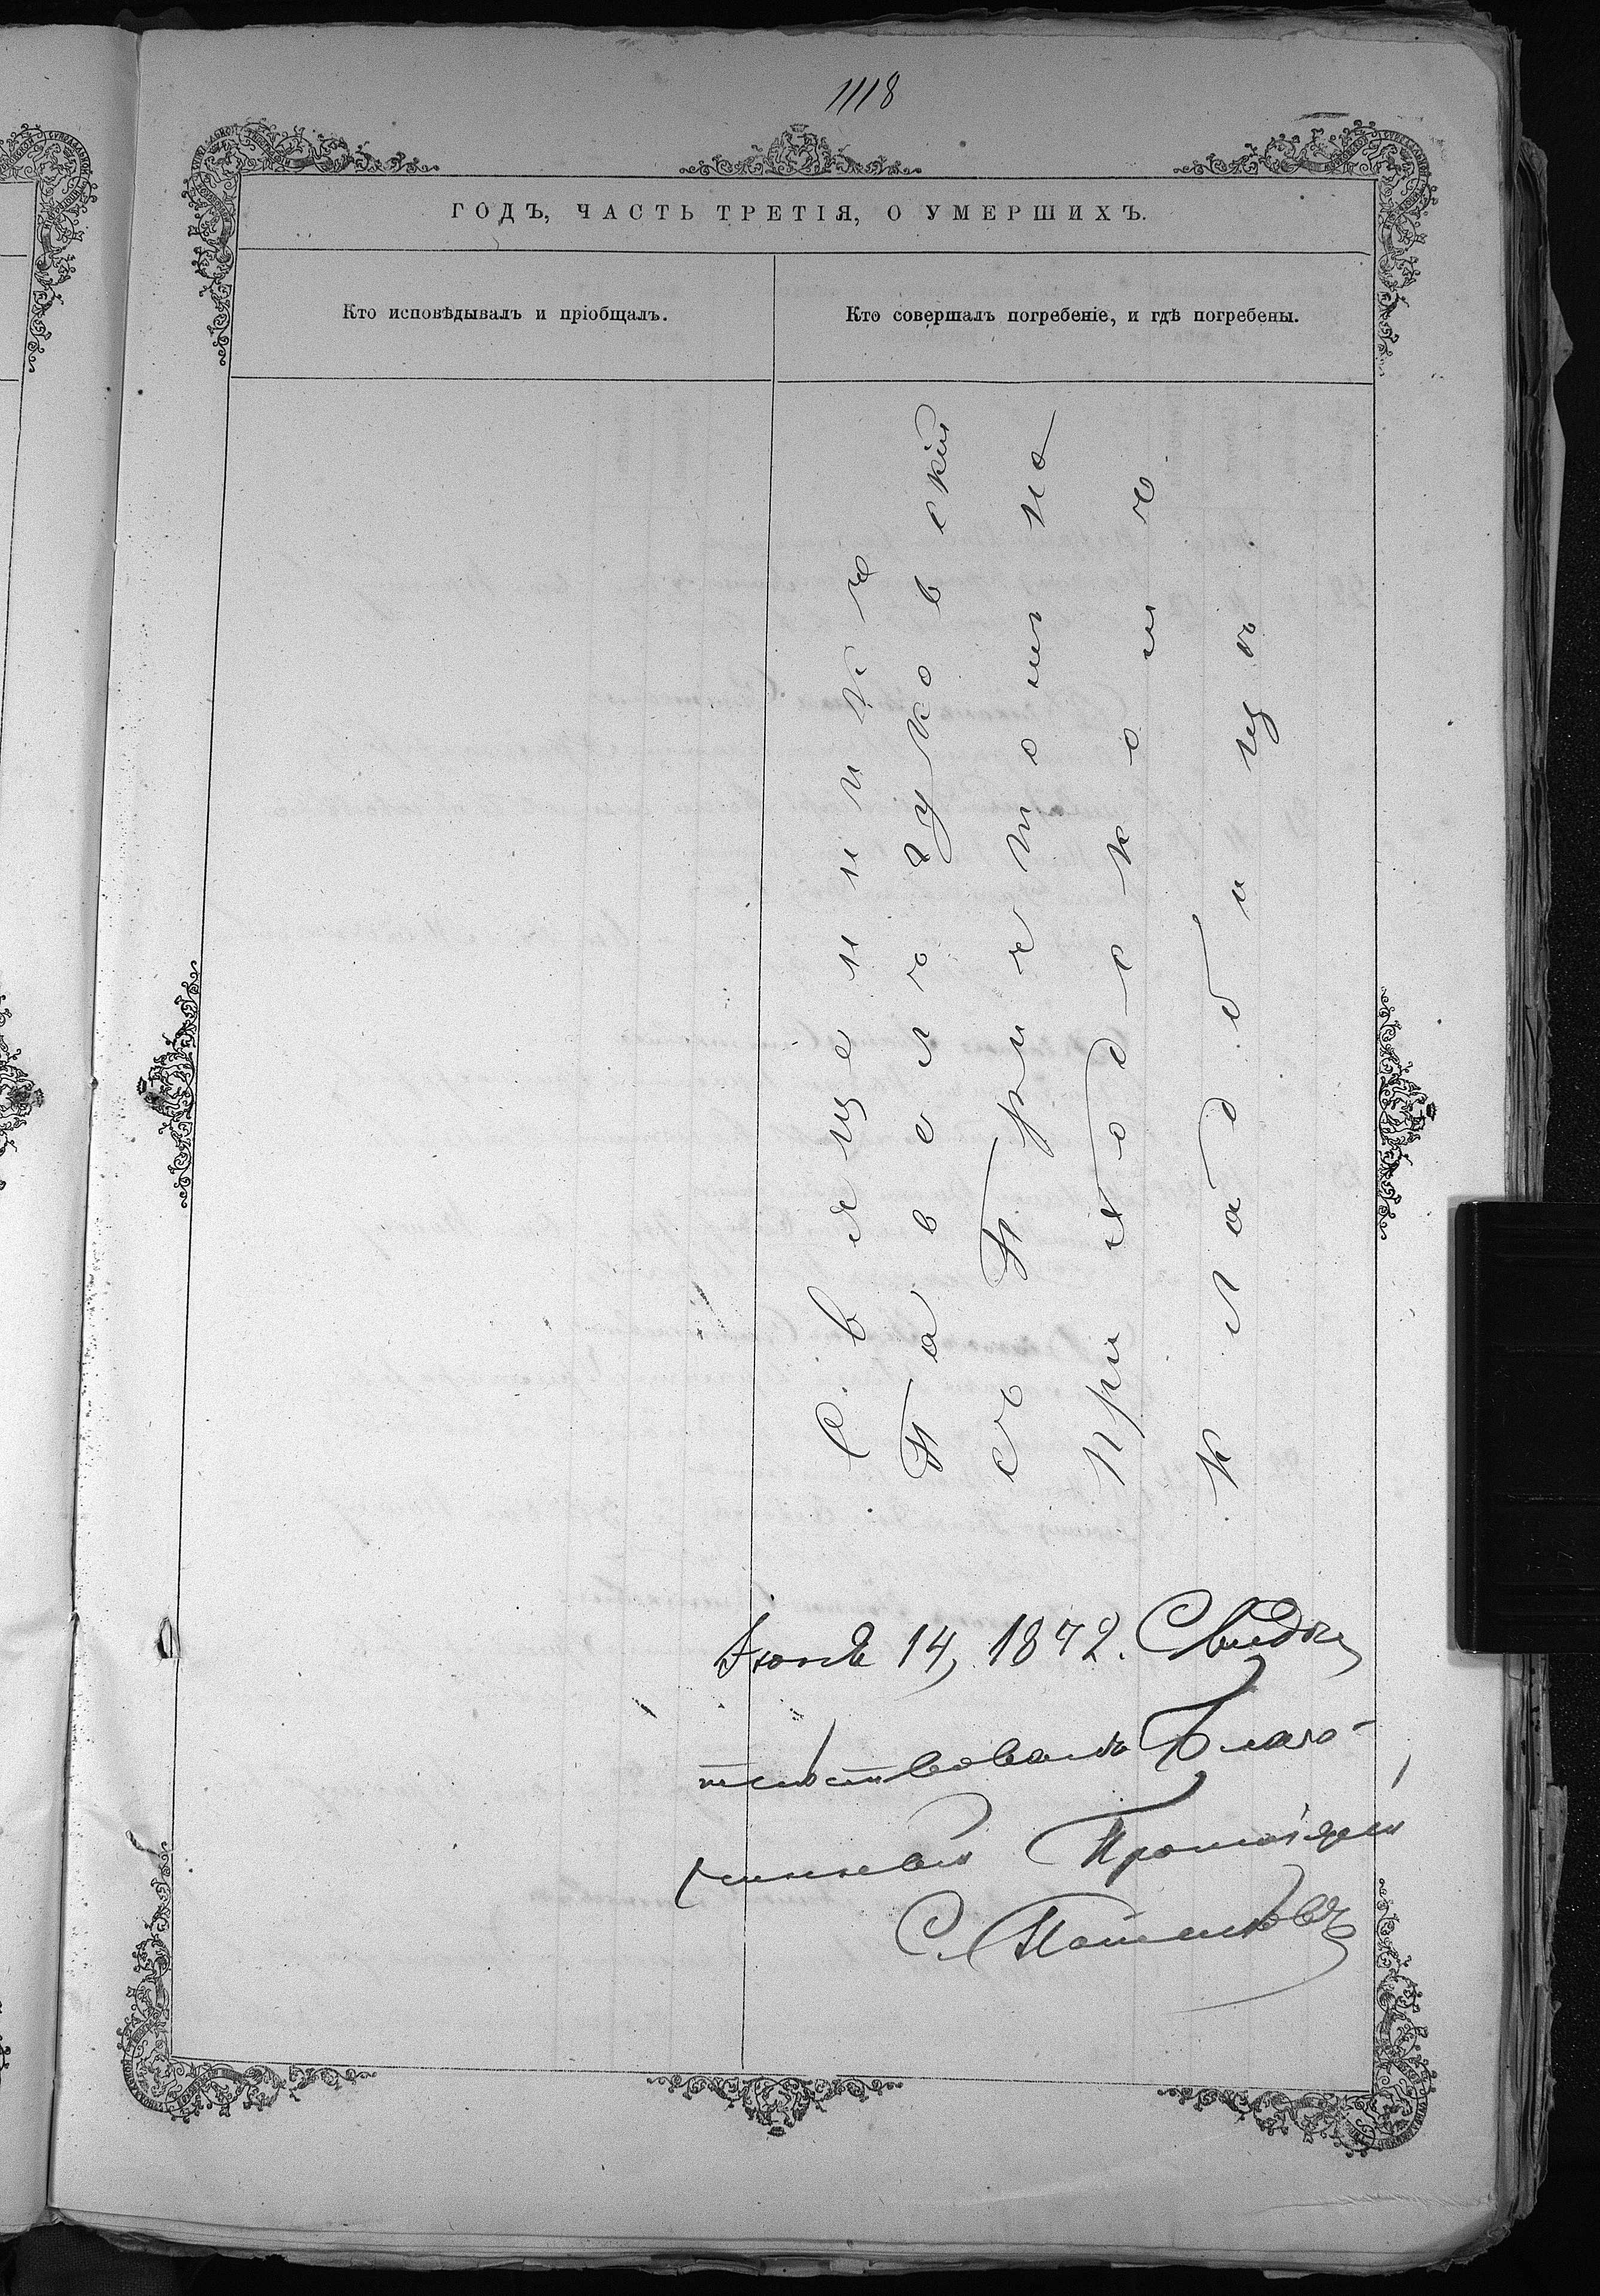 1118
ГОДЪ, ЧАСТЬ ТРЕТІЯ, О УМЕРШИХЪ.
Кто исповѣдывалъ и пріобщалъ.
Кто совершалъ погребеніе, и гдѣ погребены.
Священнике
Павелъ Чуковскій
съ Причетомъ на
приходскоме
кладбищѣ
Іюня 14, 1872. Свидѣ
тельствовалъ Благо-
чинный Протоіерей
С.